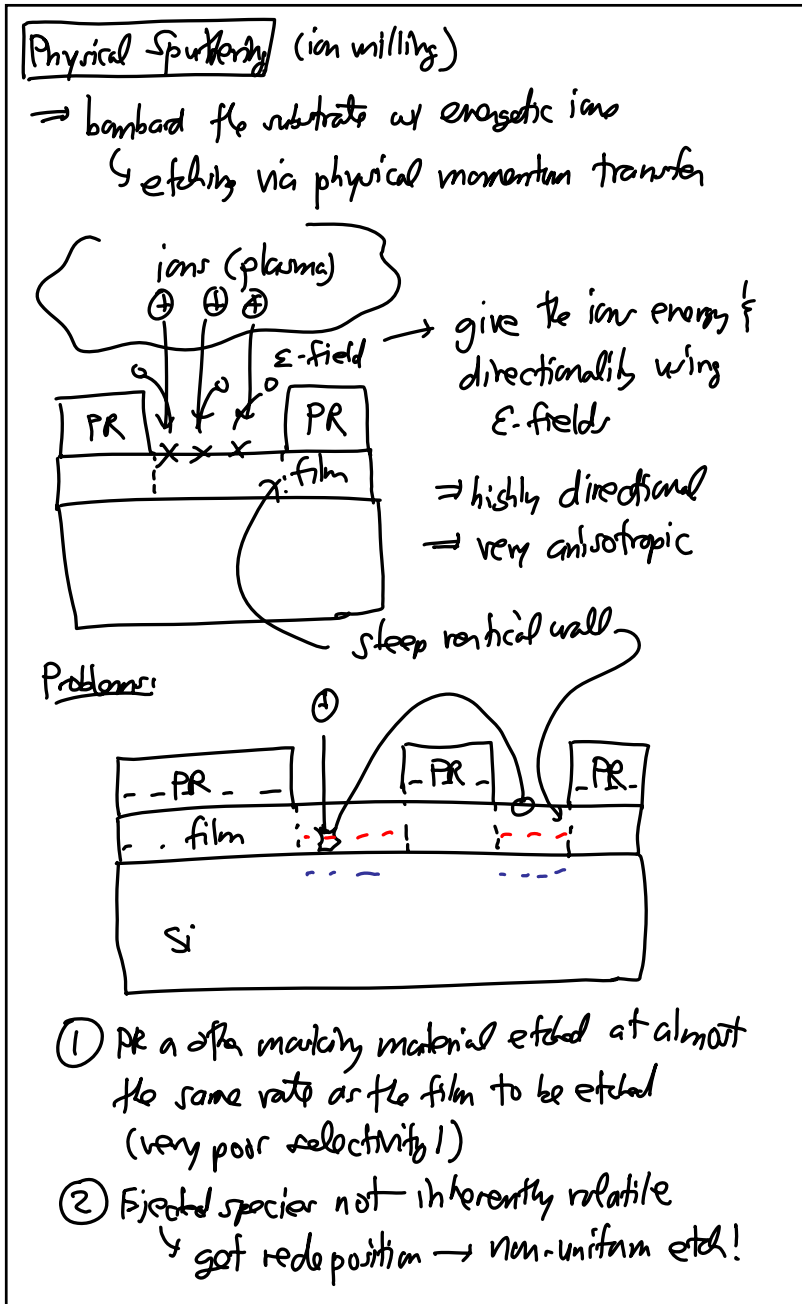 Physical Sputtering (ion milling)
⇒ bombard the substrate w/ energetic ions
↳ etching via physical momentum transfer
ions (plasma)
⊕ ⊕ ⊕
ε-field → give the ions energy &
directionality using
ε-fields
PR PR
film
⇒ highly directional
⇒ very anisotropic
steep vertical wall
Problems:
⊕
PR PR PR
film
Si
① PR or other masking material etched at almost
the same rate as the film to be etched
(very poor selectivity!)
② Ejected species not inherently volatile
↳ get redeposition → non-uniform etch!